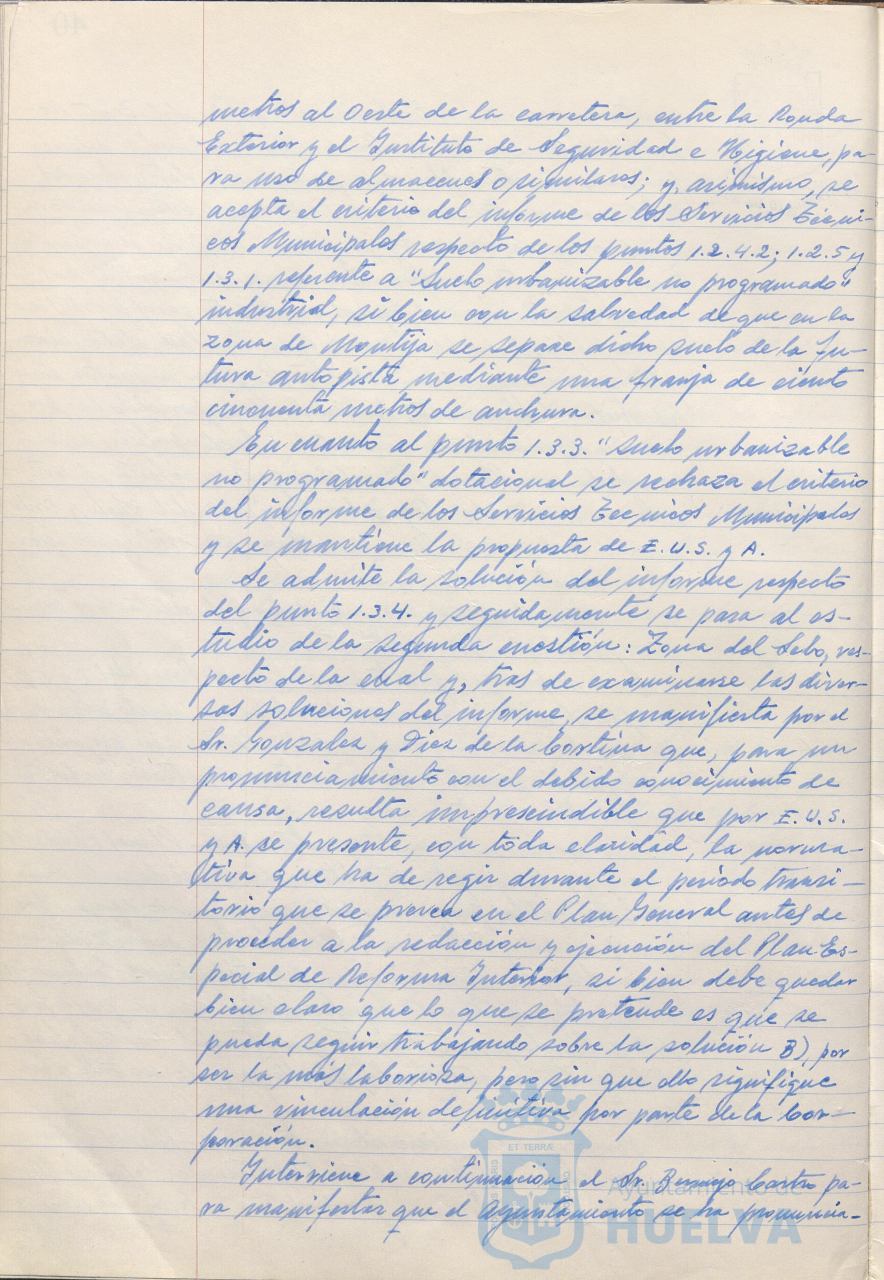 metros al Oeste de la carretera, entre la Ronda
Exterior y el Instituto de Seguridad e Higiene, pa-
ra uso de almacenes o similares; y, asimismo, se
acepta el criterio del informe de los Servicios Técni-
cos Municipales respecto de los puntos 1.2.4.2; 1.2.5 y
1.3.1. referente a "Suelo urbanizable no programado"
industrial, si bien con la salvedad de que en la
zona de Montija se separe dicho suelo de la fu-
tura autopista mediante una franja de ciento
cincuenta metros de anchura.
En cuanto al punto 1.3.3. "Suelo urbanizable
no programado" dotacional se rechaza el criterio
del informe de los Servicios Técnicos Municipales
y se mantiene la propuesta de E.U.S. y A.
Se admite la solución del informe respecto
del punto 1.3.4. y seguidamente se pasa al es-
tudio de la segunda cuestión: Zona del Sebo, res-
pecto de la cual y, tras de examinarse las diver-
sas soluciones del informe, se manifiesta por el
Sr. González y Díez de la Cortina que, para un
pronunciamiento con el debido conocimiento de
causa, resulta imprescindible que por E.U.S.
y A. se presente, con toda claridad, la norma-
tiva que ha de regir durante el período transi-
torio que se prevea en el Plan General antes de
proceder a la redacción y ejecución del Plan Es-
pecial de Reforma Interior, si bien debe quedar
bien claro que lo que se pretende es que se
pueda seguir trabajando sobre la solución B), por
ser la más laboriosa, pero sin que ello signifique
una vinculación definitiva por parte de la Cor-
poración.
Interviene a continuación el Sr. Bermejo Castro pa-
ra manifestar que el Ayuntamiento se ha pronuncia-
ET TERRÆ
Ayuntamiento de
HUELVA